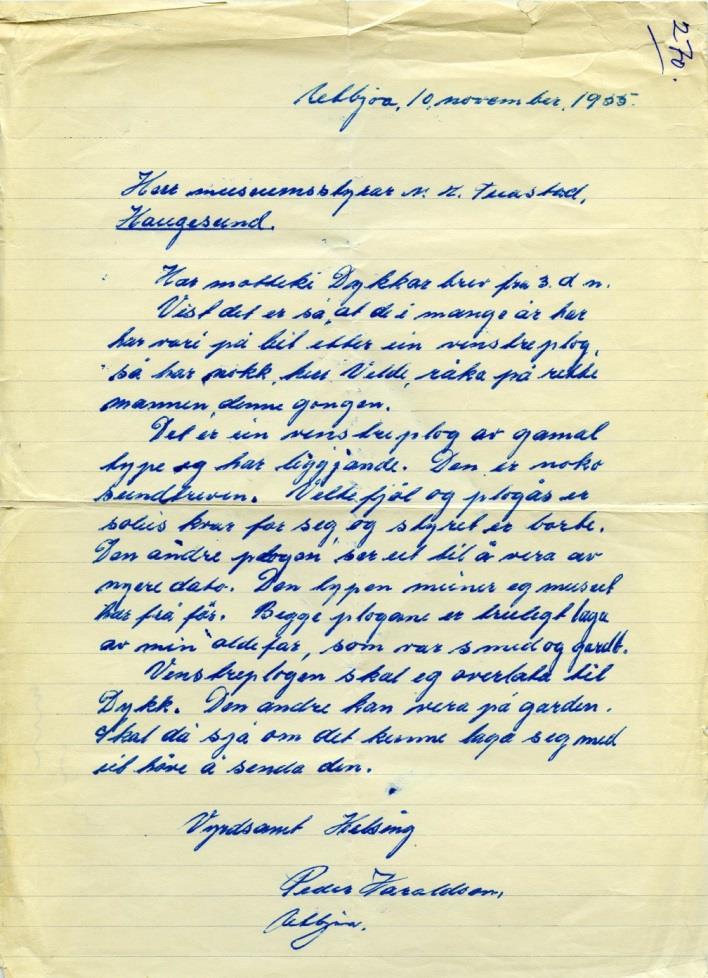 270.
Uebbjoa, 10, november, 1955.
Herr museumsstyrar N. Z. Tuastad,
Haugesund.
Har motteki Dykkar brev frå 3. d. n.
Vist det er så, at de i mange år har
har vori på leit etter ein vinstreplog,
så har nokk, herr Velde, råka på rette
mannen, denne gongen.
Det er ein venstreplog av gamal
type eg har liggjande. Den er noko
sundreven. Veltefjöl og plogås er
soleis kvar for seg, og styret er borte.
Den andre plogen, ser ut til å vera av
nyere dato. Den typen meiner eg museet
har frå för. Begge plogane er truleg laga
av min oldefar, som var smed og gardb.
Venstreplogen skal eg overlata til
Dykk. Den andre kan vera på garden.
Skal då sjå om det kunne laga seg med
eit höve å senda den.
Vyrdsamt Helsing
Peder Haraldson,